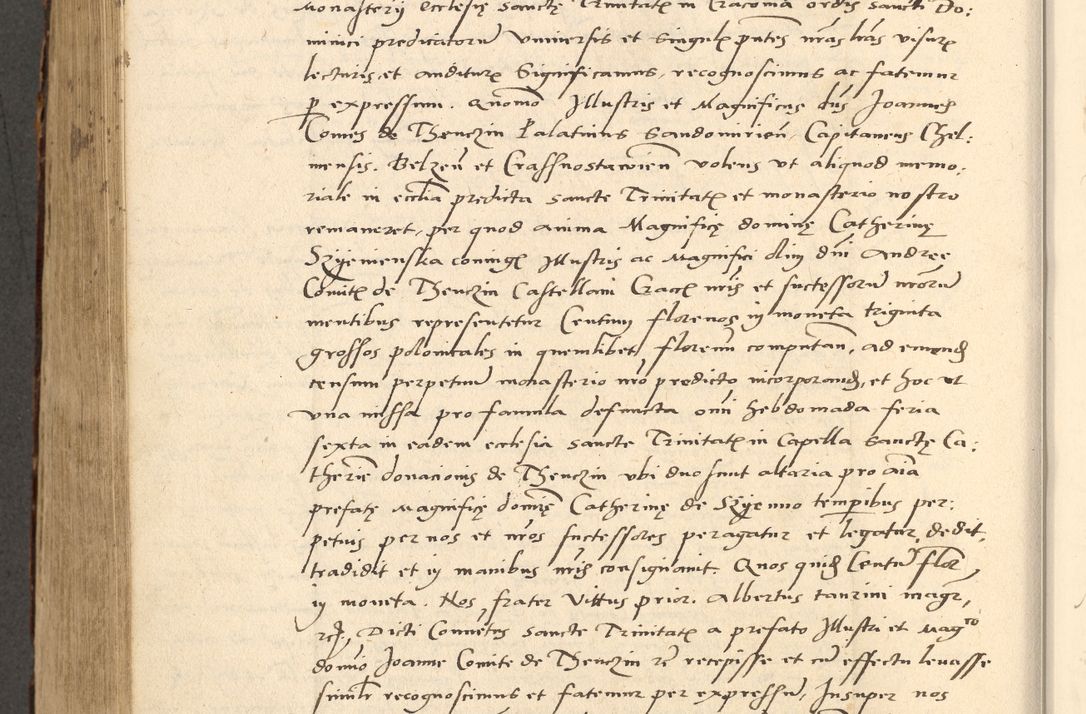 Monasterij Ecclesię Sanctę Trinitatꝭ in Cracovia ordīs Sancti Do:
minici predicatorū Universis et Singulꝭ pntes nrās lrās visurꝭ
lecturis, et auditurꝭ Significamus, recognoscimus ac fatemur
ꝑ expressum. Quomō Illustris et Magnificus dn̄s Joannes
Comes de Thenczin Palatinus Sandomirien̄, Capitaneus Chel:
mensis. Belzen̄ et Crassnostawien̄ volens ut aliquod memo:
riale in ecclīa predicta Sancte Trinitatꝭ et monasterio nostro
remaneret, per quod anima Magnificę dominę Catherinę
Szyemienska coniugꝭ Illustris ac Magnifici olim dn̄i Andree
Comitꝭ de Thenczin Castellani Craccꝭ nr̄is et successorū nr̄orū
mentibus representetur Centum florenos in moneta triginta
grossos polonicales in quemlibet florenū computan̄, ad emendꝭ
censum perpetuū monasterio nr̄o predicto incorporandꝭ, et hoc ut
una missa pro famula defuncta omī hebdomada feria
sexta in eadem ecclesia Sancte Trinitatꝭ in Capella Sanctę Ca:
therinē donacionis de Thenczin ubi duo sunt altaria pro aīa
prefatę Magnificę dominę Catherinę de Szyemno temporibus per:
petuis per nos et nr̄os successores peragatur et legatur, dedit,
tradidit et in manibus nr̄is consignavit. Quos quidꝭ Centū flor̄
in moneta. Nos, frater Vittus prior. Albertus taurini magr̄,
rc̄ꝭ, Dicti Conventus Sancte Trinitatꝭ a prefato Illustri et Magco
domīo Joanne Comite de Thenczin rc̄ recepisse et cū effectu levasse
similr̄ recognoscimus et fatemur per expressū, Insuper nos